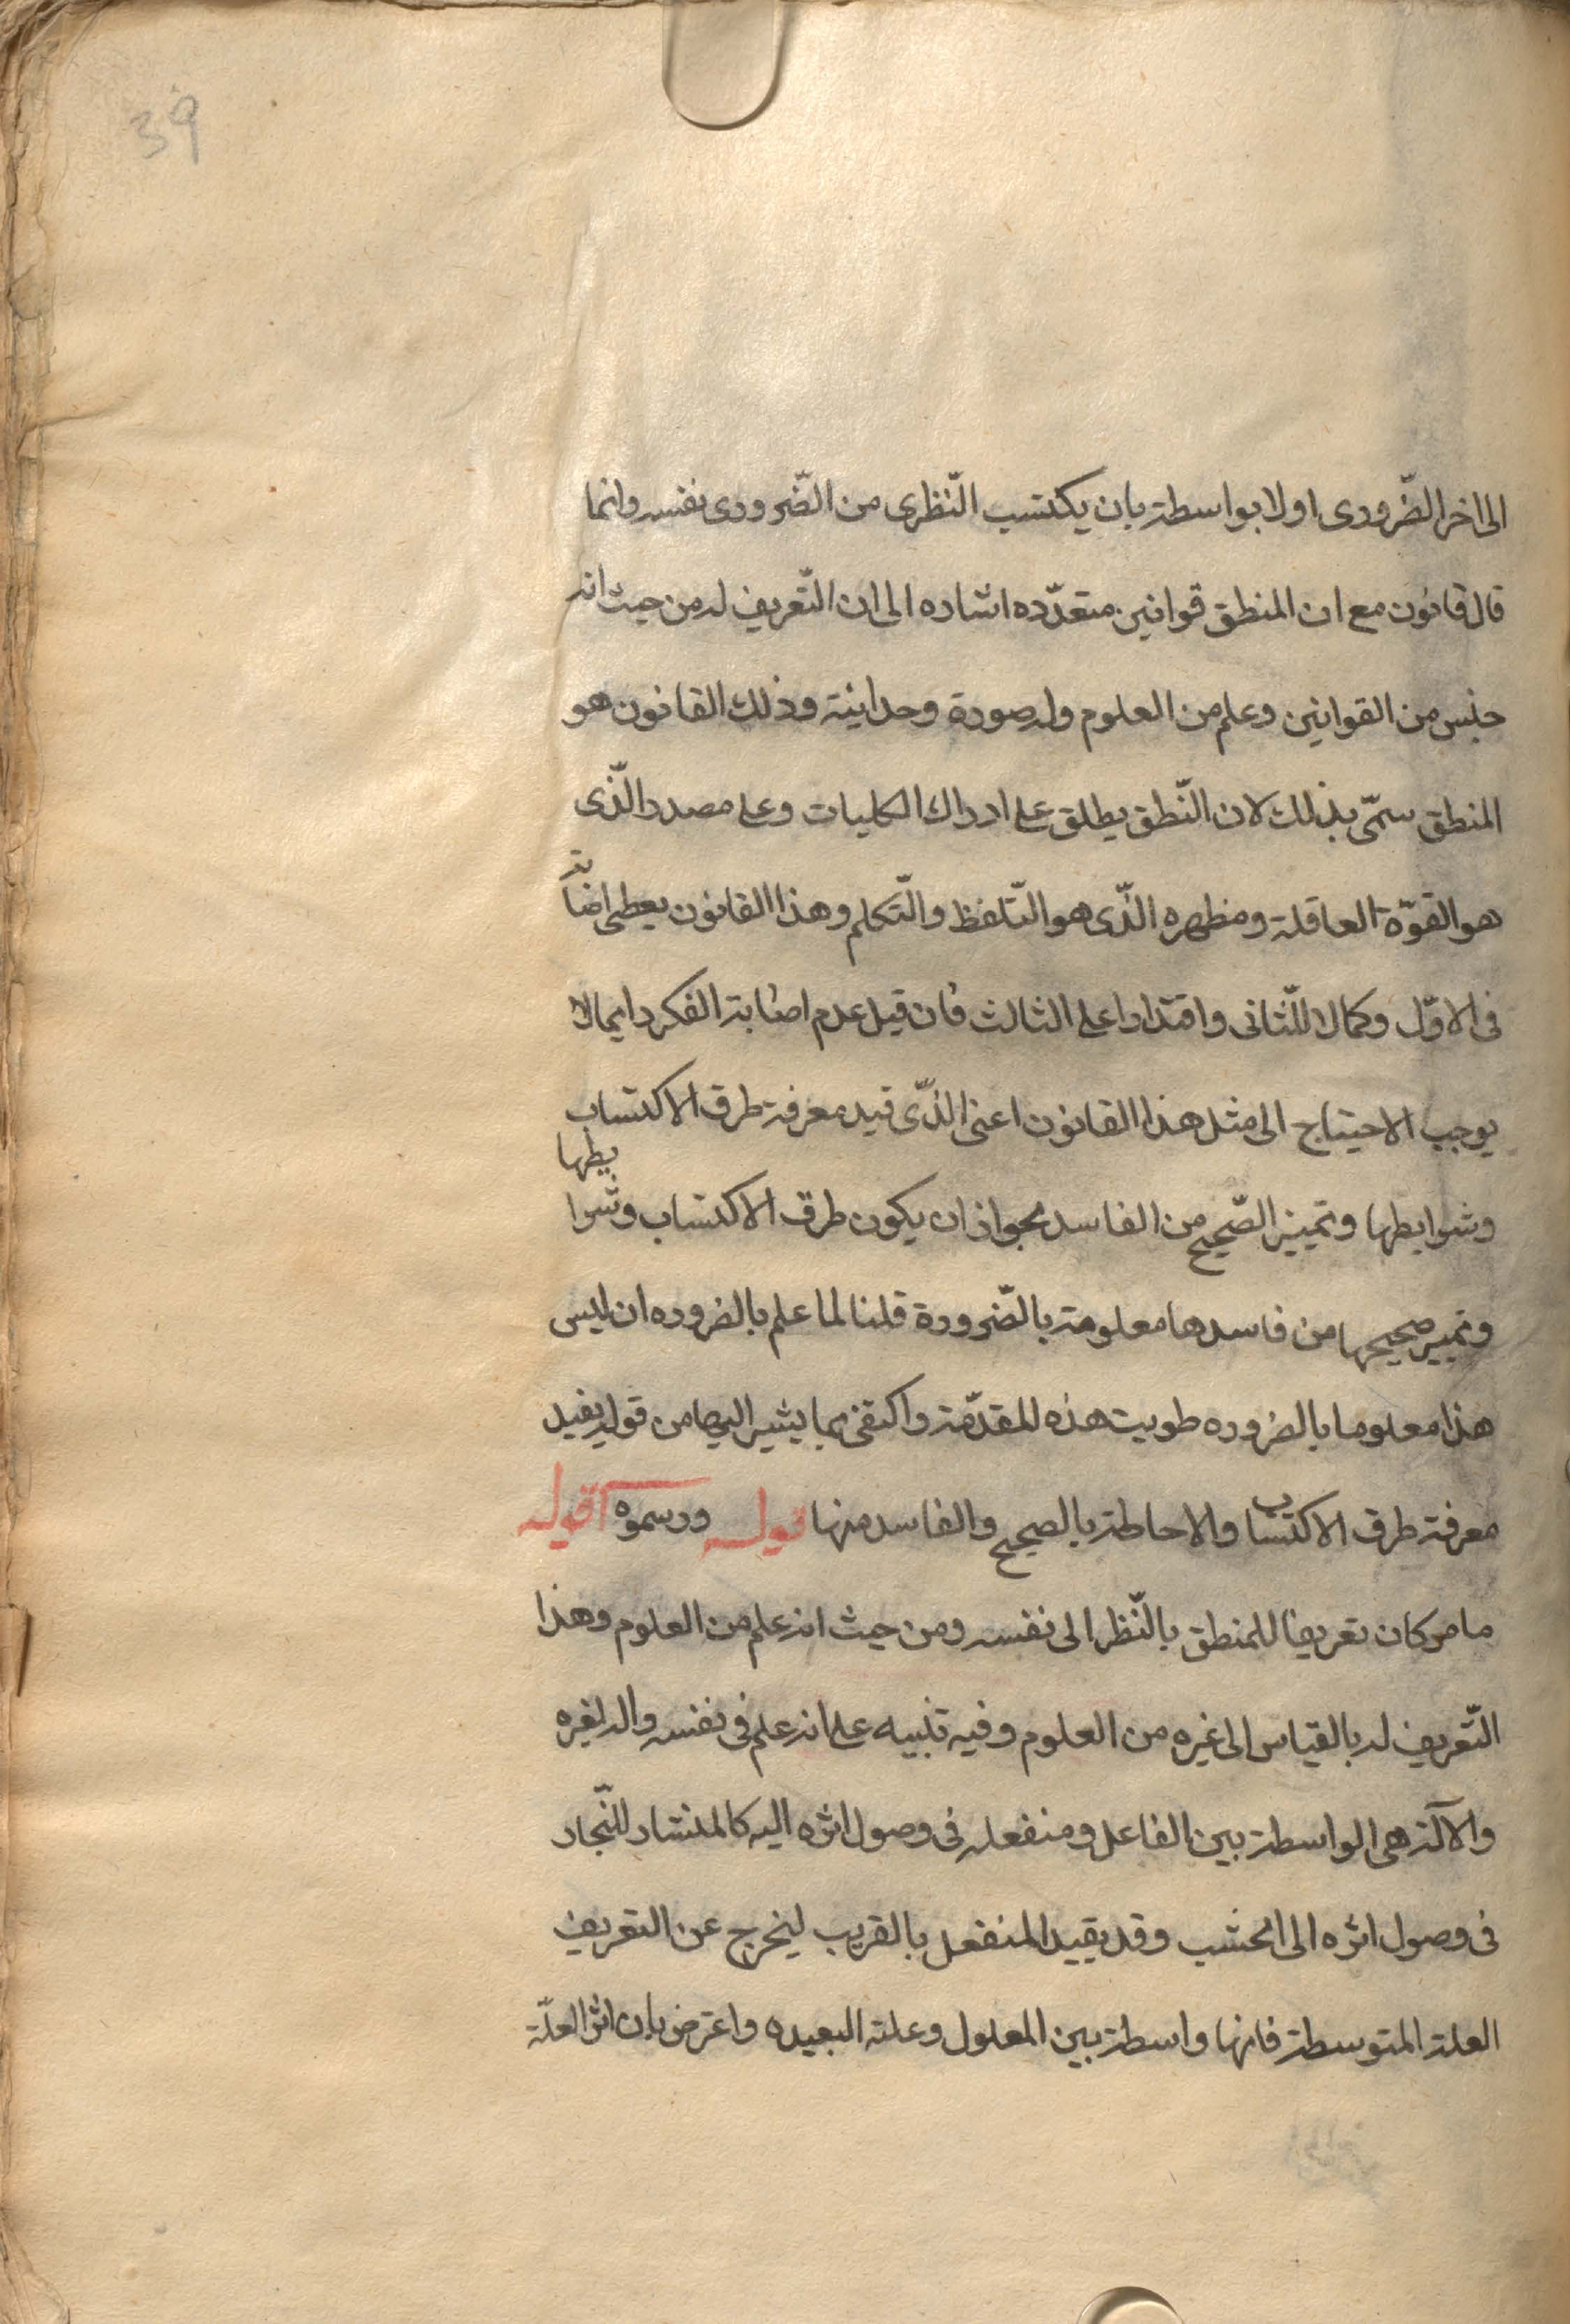 39
الى اخر الضّرورى او لا بواسطة بان يكتسب النّظرى من الضّرورى نفسه وانما
قال قانون مع ان المنطق قوانين متعدّده اشاره الى ان التّعريف له من حيث انه
جنس من القوانين وعلم من العلوم وله صورة وحدانية وذلك القانون هو
المنطق سمّى بذلك لان النّطق يطلق على ادراك الكليات وعلى مصدر الّذى
هو القوّة العاقلة ومظهره الذّى هو التّلفظ والتّكلم وهذا القانون يعطى اصابة
فى الاوّل وكمالا للثّانى واقتدارا على الثالث فان قيل عدم اصابة الفكر دايما لا
يوجب الاحتياج الى مثل هذا القانون اعنى الذّى فيه معرفة طرق الاكتساب
وشرايطها وتمييز الصّحيح من الفاسد بجواز ان يكون طرق الاكتساب وشرايطها
وتمييز صحيحها من فاسدها معلومة بالضّرورة قلنا لما علم بالضروره ان ليس
هذا معلوما بالضروره طويت هذه المقدّمة واكتفى بما يشير اليها من قوله يفيد
معرفة طرق الاكتساب والاحاطة بالصحيح والفاسد منها قوله ورسموه اقوله
ما مر كان تعريفا للمنطق بالنّظر الى نفسه ومن حيث انه علم من العلوم وهذا
التّعريف له بالقياس الى غيره من العلوم وفيه تنبيه على انه علم فى نفسه والة لغيره
والآلة هى الواسطة بين الفاعل ومنفعله فى وصول اثره اليه كالمنشار للنّجار
فى وصول اثره الى الخشب وقد يقيد المنفعل بالقريب ليخرج عن التعريف
العلة المتوسطة فانها واسطة بين المعلول وعلته البعيده واعترض بان اثر العلّة